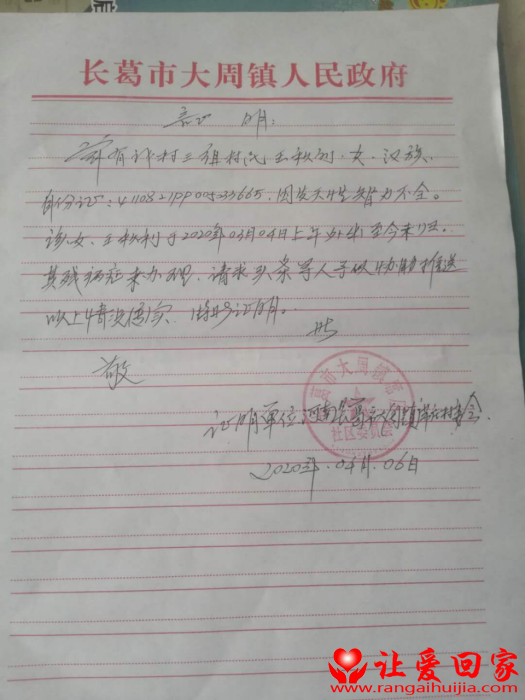 长葛市大周镇人民政府
证 明:
有 村三组村民王秋利、女、汉族、
身份证: 因先天性智力不全。
该女、王秋利于2020年03月04日上午外出至今未归。
其残疾证未办理、请求头条寻人予以协助推送
以上情况属实、特此证明。
此
敬
证明单位河南长葛市大周镇 村委会
2020年.04月.06日
长葛市大周镇
社区委员会
让爱回家
www.rangaihuijia.com